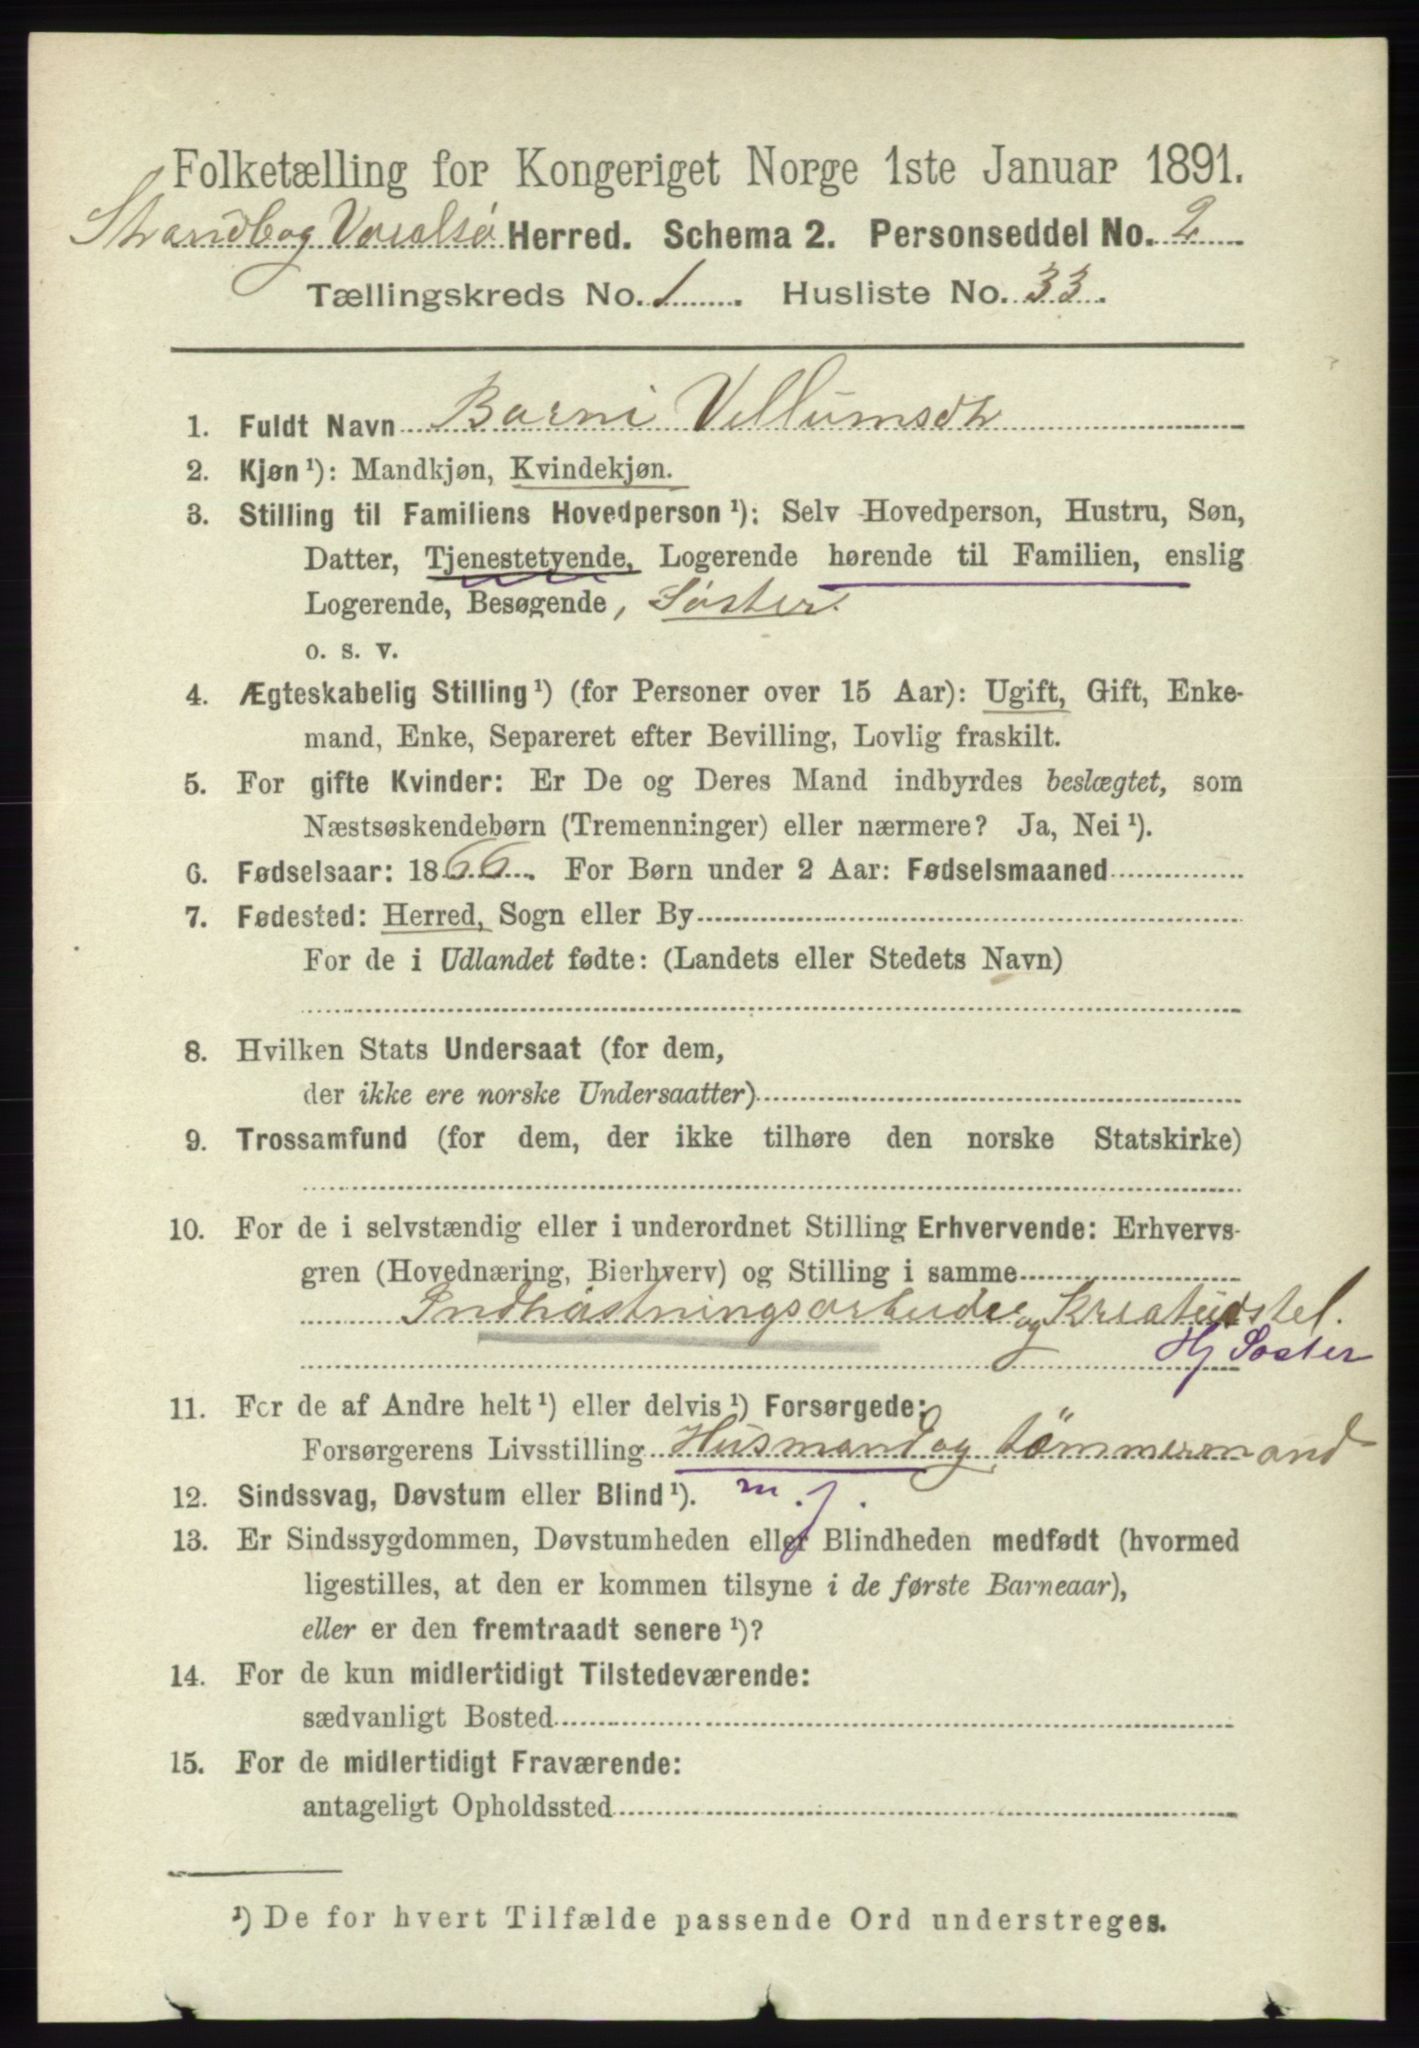 Folketælling for Kongeriget Norge 1ste Januar 1891.
Strandb og Varalsø Herred. Schema 2. Personseddel No. 2
Tællingskreds No. 1. Husliste No. 33.
1. Fuldt Navn Barni Vellumsdtr
2. Kjøn ¹): Mandkjøn, Kvindekjøn.
3. Stilling til Familiens Hovedperson ¹): Selv Hovedperson, Hustru, Søn,
Datter, Tjenestetyende, Logerende hørende til Familien, enslig
Logerende, Besøgende, Søster.
o. s. v.
4. Ægteskabelig Stilling ¹) (for Personer over 15 Aar): Ugift, Gift, Enke-
mand, Enke, Separeret efter Bevilling, Lovlig fraskilt.
5. For gifte Kvinder: Er De og Deres Mand indbyrdes beslægtet, som
Næstsøskendebørn (Tremenninger) eller nærmere? Ja, Nei ¹).
6. Fødselsaar: 1866. For Børn under 2 Aar: Fødselsmaaned
7. Fødested: Herred, Sogn eller By
For de i Udlandet fødte: (Landets eller Stedets Navn)
8. Hvilken Stats Undersaat (for dem,
der ikke ere norske Undersaatter)
9. Trossamfund (for dem, der ikke tilhøre den norske Statskirke)
10. For de i selvstændig eller i underordnet Stilling Erhvervende: Erhvervs-
gren (Hovednæring, Bierhverv) og Stilling i samme
Indhøstningsarbeide og Kreaturstel.
Hj Søster
11. For de af Andre helt ¹) eller delvis ¹) Forsørgede:
Forsørgerens Livsstilling Husmand og tømmermand
12. Sindssvag, Døvstum eller Blind ¹). m. j.
13. Er Sindssygdommen, Døvstumheden eller Blindheden medfødt (hvormed
ligestilles, at den er kommen tilsyne i de første Barneaar),
eller er den fremtraadt senere ¹)?
14. For de kun midlertidigt Tilstedeværende:
sædvanligt Bosted
15. For de midlertidigt Fraværende:
antageligt Opholdssted
¹) De for hvert Tilfælde passende Ord understreges.